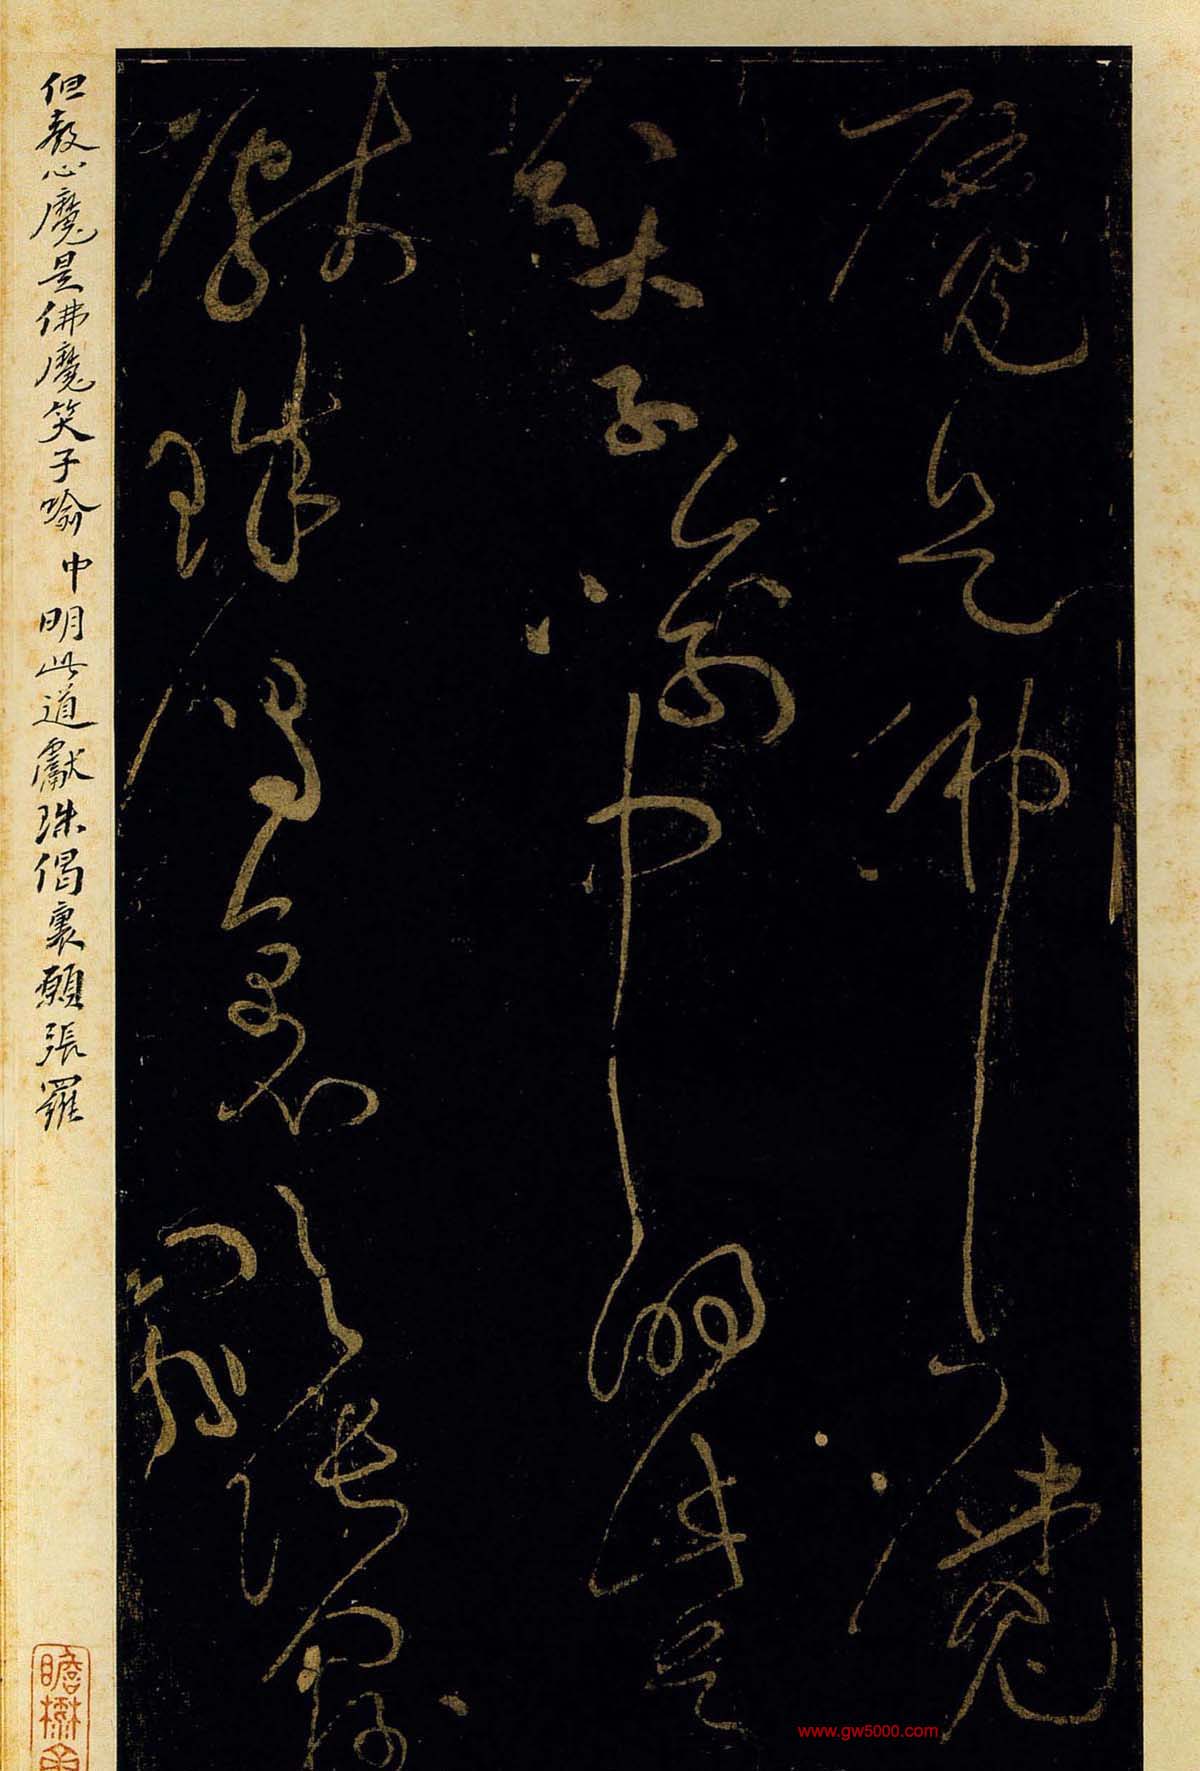 魔是佛魔
笑子喻中明此道
獻珠偈裏願張羅
但教心魔是佛魔笑子喻中明此道獻珠偈裏願張羅
www.gw5000.com